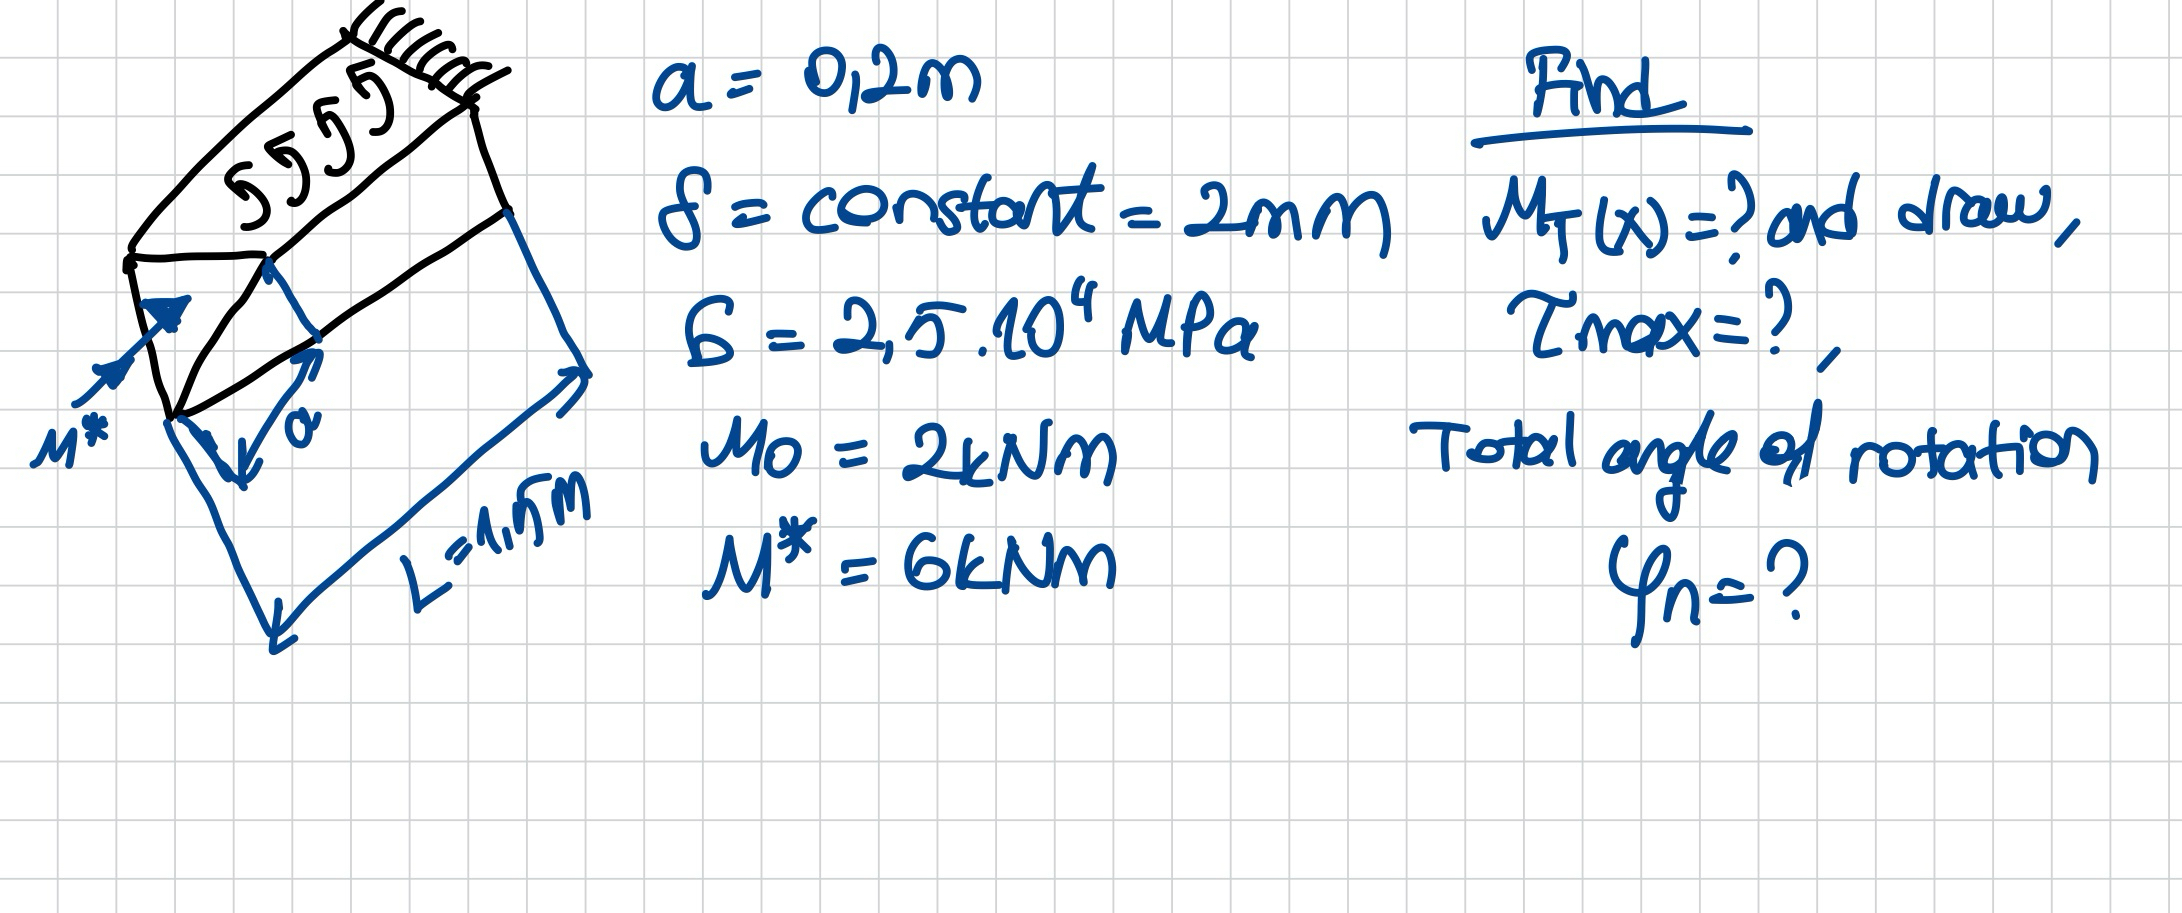 a = 0,2m
δ = constant = 2mm
G = 2,5.10⁴ MPa
M0 = 2kNm
M* = 6kNm
Find
MT(x)=? and draw,
τmax=?,
Total angle of rotation
φn=?
M*
a
L=1,5m